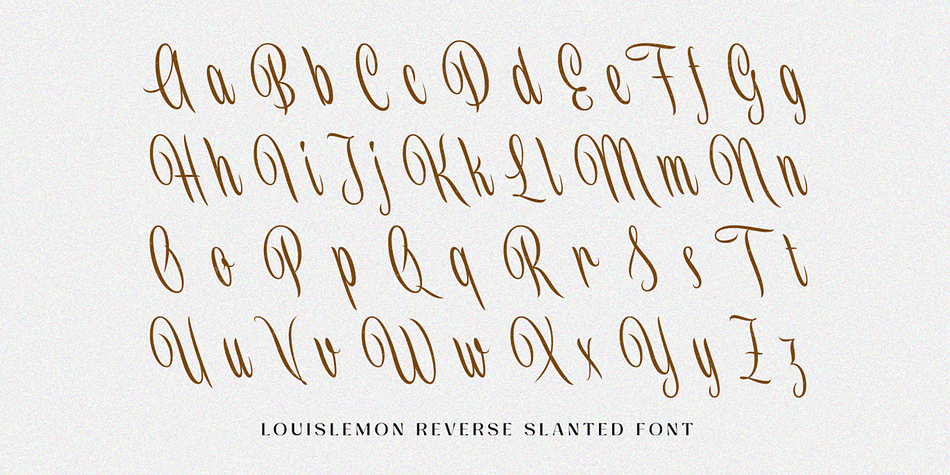 Aa Bb Cc Dd Ee Ff Gg
Hh Ii Jj Kk Ll Mm Nn
Oo Pp Qq Rr Ss Tt
Uu Vv Ww Xx Yy Zz
LOUISLEMON REVERSE SLANTED FONT